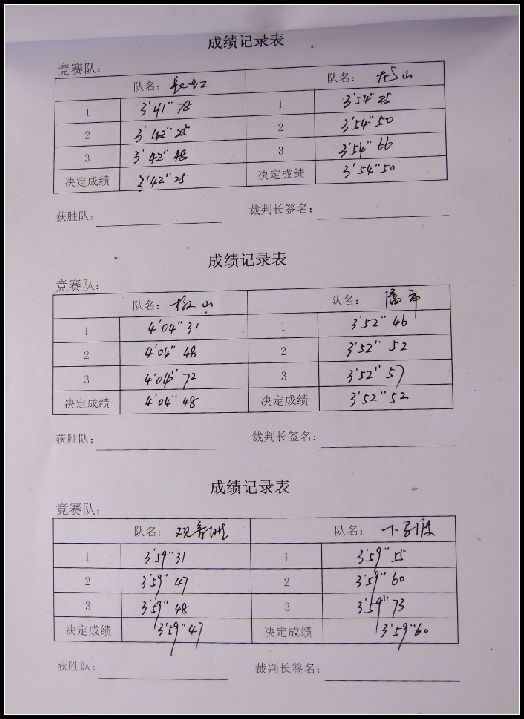 成绩记录表
竞赛队:
队名: 队名: 山
1 3'41"78 1 3'54"25
2 3'42"25 2 3'54"50
3 3'42"48 3 3'54"66
决定成绩 3'42"25 决定成绩 3'54"50
获胜队: 裁判长签名:
成绩记录表
竞赛队:
队名: 山 队名:
1 4'04"31 1 3'52"46
2 4'04"48 2 3'52"52
3 4'04"72 3 3'52"57
决定成绩 4'04"48 决定成绩 3'52"52
获胜队: 裁判长签名:
成绩记录表
竞赛队:
队名: 观音洲 队名: 小
1 3'59"31 1 3'59"55
2 3'59"47 2 3'59"60
3 3'59"48 3 3'59"73
决定成绩 3'59"47 决定成绩 3'59"60
获胜队: 裁判长签名: